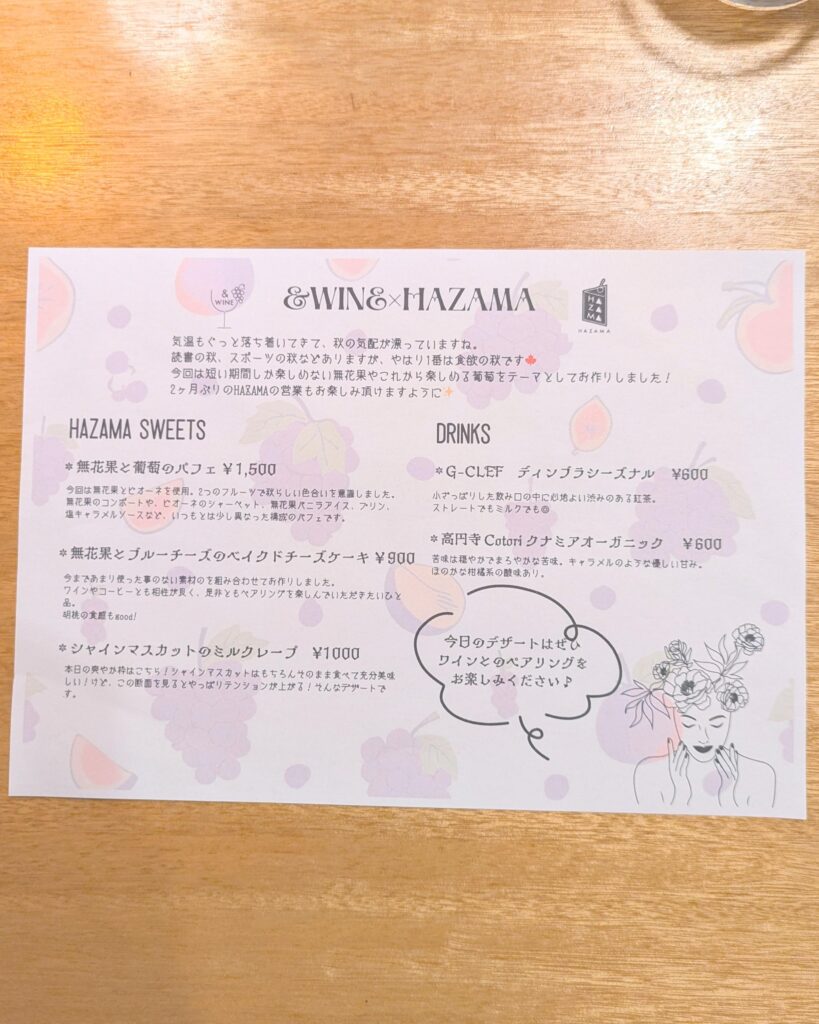 & WINE
&WINE×HAZAMA
HAZAMA
HAZAMA
気温もぐっと落ち着いてきて、秋の気配が漂っていますね。
読書の秋、スポーツの秋などありますが、やはり1番は食欲の秋です🍁
今回は短い期間しか楽しめない無花果やこれから楽しめる葡萄をテーマとしてお作りしました！
2ヶ月ぶりのHAZAMAの営業もお楽しみ頂けますように✨
HAZAMA SWEETS
*無花果と葡萄のパフェ ¥1,500
今回は無花果とピオーネを使用。2つのフルーツで秋らしい色合いを意識しました。
無花果のコンポートや、ピオーネのシャーベット、無花果バニラアイス、プリン、
塩キャラメルソースなど、いつもとは少し異なった構成のパフェです。
*無花果とブルーチーズのベイクドチーズケーキ ¥900
今まであまり使った事のない素材のを組み合わせてお作りしました。
ワインやコーヒーとも相性が良く、是非ともペアリングを楽しんでいただきたいひと
品。
胡桃の食感もgood!
*シャインマスカットのミルクレープ ¥1000
本日の爽やか枠はこちら！シャインマスカットはもちろんそのまま食べて充分美味
しい！けど、この断面を見るとやっぱりテンションが上がる！そんなデザートで
す。
DRINKS
*G-CLEF ディンブラシーズナル ¥600
小ざっぱりした飲み口の中に心地よい渋みのある紅茶。
ストレートでもミルクでも◎
*高円寺 Cotori クナミアオーガニック ¥600
苦味は穏やかでまろやかな苦味。キャラメルのような優しい甘み。
ほのかな柑橘系の酸味あり。
今日のデザートはぜひ
ワインとのペアリングを
お楽しみください♪